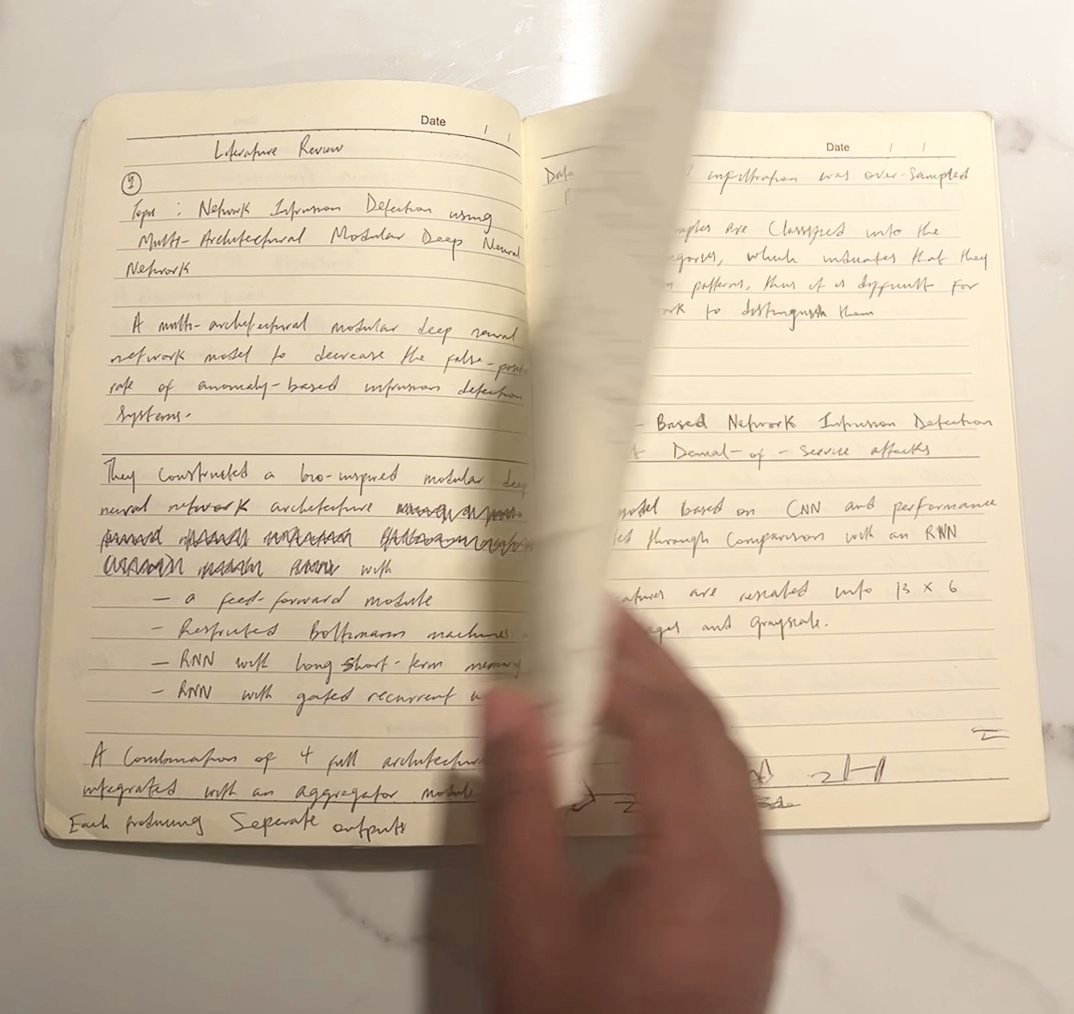 Date / /
Literature Review
1
Topic : Network Intrusion Detection using
Multi-Architectural Modular Deep Neural
Network
A multi-architectural modular deep neural
network model to decrease the false-posit
rate of anomaly-based intrusion detection
systems.
They constructed a bio-inspired modular deep
neural network architecture
with
- a feed-forward module
- Restricted Boltzmann machines
- RNN with long short-term memory
- RNN with gated recurrent u
A Combination of 4 full architectur
integrated with an aggregator module
Each producing Seperate outputs
Date / /
Data infiltration was over-sampled
are classified into the
which indicates that they
patterns, thus it is difficult for
to distinguish them
- Based Network Intrusion Detection
Denial-of-Service attacks
based on CNN and performance
through Comparison with an RNN
are rescaled into 13 x 6
and grayscale.